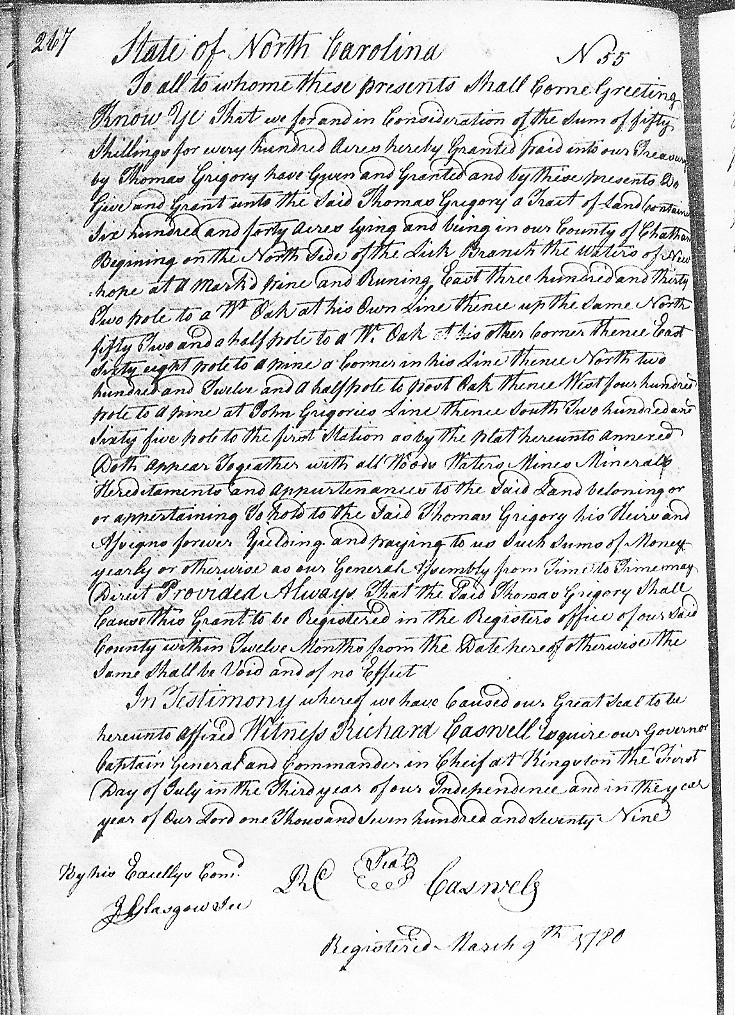 267
State of North Carolina N 55
To all to whome these presents Shall Come Greeting
Know Ye That we for and in Consideration of the Sum of fifty
Shillings for every hundred Acres hereby Granted paid into our Treasury
by Thomas Grigory have Given and Granted and by these presents Do
Give and Grant unto the Said Thomas Grigory a Tract of Land Contain
Six hundred and forty Acres lying and being in our County of Chatham
Begining on the North Side of the Lick Branch the waters of New
hope at a Markd pine and Runing East three hundred and thirty
Two pole to a Wt Oak at his Own Line thence up the Same North
fifty Two and a half pole to a Wt Oak at his other Corner thence East
Sixty eight pole to a pine a Corner in his Line thence North two
hundred and Twelve and a half pole to post Oak thence West four hundred
pole to a pine at John Grigories Line thence South Two hundred and
Sixty five pole to the first Station as by the plat hereunto annexed
Doth Appear Togeather with all Woods Waters Mines Minerals
Hereditaments and Appurtenances to the Said Land beloning or
or appertaining To hold to the Said Thomas Grigory his Heirs and
Assigns forever Yielding and paying to us Such Sums of Money
yearly or otherwise as our General Assembly from Time to Time may
Direct Provided Always That the Said Thomas Grigory Shall
Cause this Grant to be Registered in the Registers office of our Said
County within Twelve Months from the Date hereof otherwise the
Same Shall be Void and of no Effect
In Testimony whereof we have Caused our Great Seal to be
hereunto affixed Witness Richard Caswell Esquire our Governor
Captain General and Commander in Cheif at Kingston the First
Day of July in the Third year of our Independence and in the year
year of Our Lord one Thousand Seven hundred and Seventy Nine
By his Excellys Comd
RC Seal Caswell
J Glasgow Sec
Registered March 9th 1780